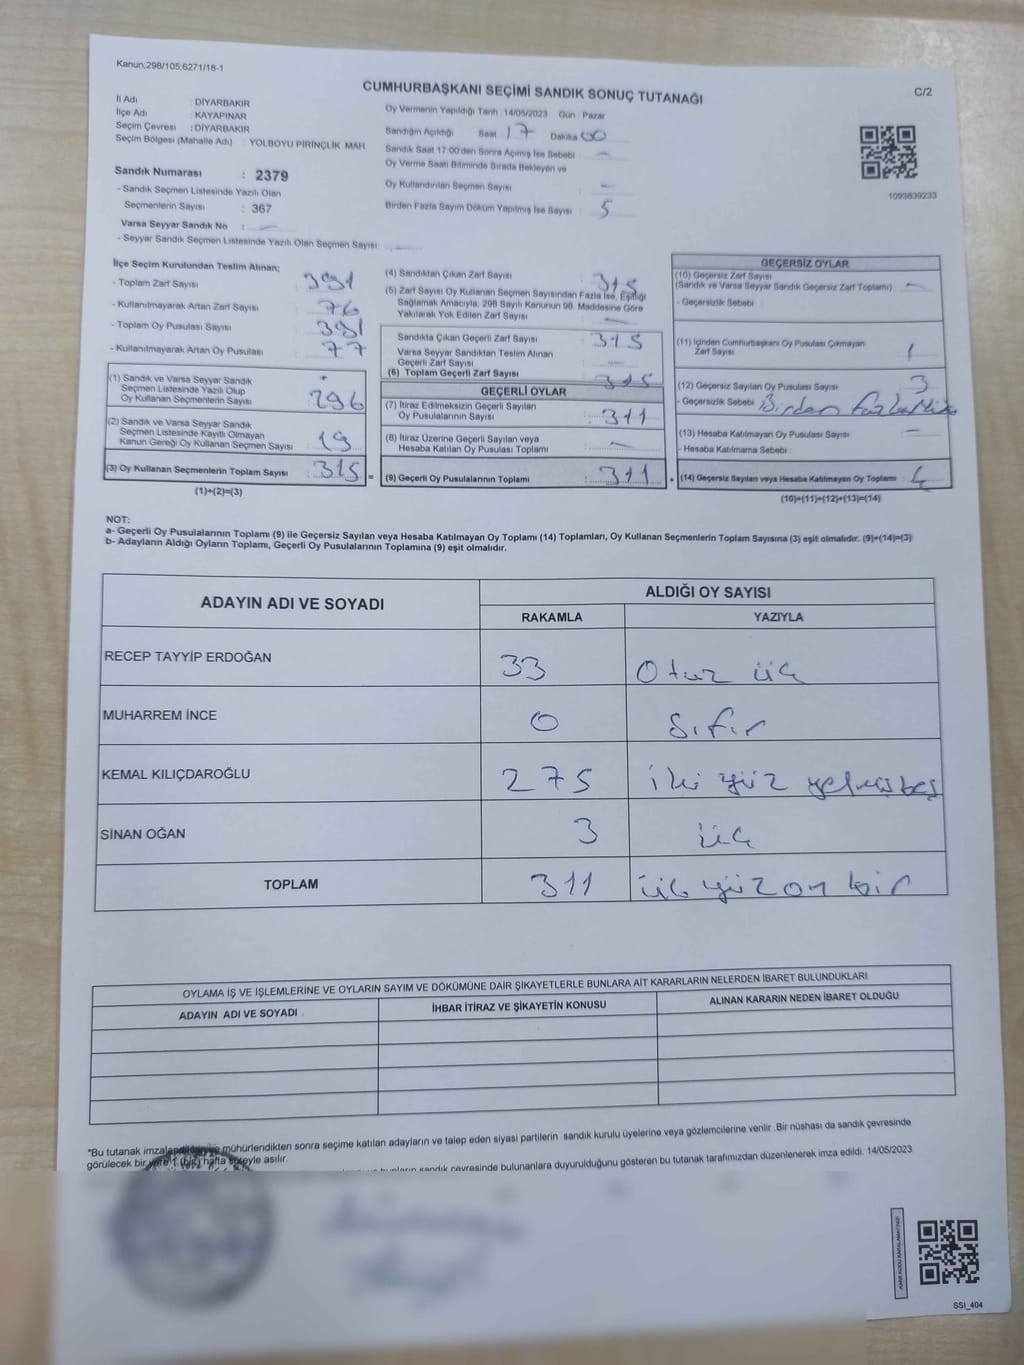 Kanun;298/105,6271/18-1
CUMHURBAŞKANI SEÇİMİ SANDIK SONUÇ TUTANAĞI
C/2
İl Adı : DİYARBAKIR
İlçe Adı : KAYAPINAR
Seçim Çevresi : DİYARBAKIR
Seçim Bölgesi (Mahalle Adı) : YOLBOYU PİRİNÇLİK MAH
Sandık Numarası : 2379
- Sandık Seçmen Listesinde Yazılı Olan
Seçmenlerin Sayısı : 367
Varsa Seyyar Sandık No : -
- Seyyar Sandık Seçmen Listesinde Yazılı Olan Seçmen Sayısı: -
Oy Vermenin Yapıldığı Tarih :14/05/2023 Gün : Pazar
Sandığın Açıldığı Saat 17 Dakika 00
Sandık Saat 17:00'den Sonra Açımış İse Sebebi -
Oy Verme Saati Bitiminde Sırada Bekleyen ve
Oy Kullandırılan Seçmen Sayısı -
Birden Fazla Sayım Döküm Yapılmış İse Sayısı 5
1093839233
İlçe Seçim Kurulundan Teslim Alınan;
- Toplam Zarf Sayısı : 391
- Kullanılmayarak Artan Zarf Sayısı : 76
- Toplam Oy Pusulası Sayısı : 391
- Kullanılmayarak Artan Oy Pusulası : 77
(1) Sandık ve Varsa Seyyar Sandık
Seçmen Listesinde Yazılı Olup
Oy Kullanan Seçmenlerin Sayısı : 296
(2) Sandık ve Varsa Seyyar Sandık
Seçmen Listesinde Kayıtlı Olmayan
Kanun Gereği Oy Kullanan Seçmen Sayısı : 19
(3) Oy Kullanan Seçmenlerin Toplam Sayısı : 315 =
(1)+(2)=(3)
(4) Sandıktan Çıkan Zarf Sayısı : 315
(5) Zarf Sayısı Oy Kullanan Seçmen Sayısından Fazla İse, Eşitliği
Sağlamak Amacıyla, 298 Sayılı Kanunun 98. Maddesine Göre
Yakılarak Yok Edilen Zarf Sayısı : -
Sandıkta Çıkan Geçerli Zarf Sayısı : 315
Varsa Seyyar Sandıktan Teslim Alınan
Geçerli Zarf Sayısı : -
(6) Toplam Geçerli Zarf Sayısı : 315
GEÇERLİ OYLAR
(7) İtiraz Edilmeksizin Geçerli Sayılan
Oy Pusulalarının Sayısı : 311
(8) İtiraz Üzerine Geçerli Sayılan veya
Hesaba Katılan Oy Pusulası Toplamı : -
(9) Geçerli Oy Pusulalarının Toplamı : 311 +
GEÇERSİZ OYLAR
(10) Geçersiz Zarf Sayısı
(Sandık ve Varsa Seyyar Sandık Geçersiz Zarf Toplamı) : -
- Geçersizlik Sebebi :
(11) İçinden Cumhurbaşkanı Oy Pusulası Çıkmayan
Zarf Sayısı : 1
(12) Geçersiz Sayılan Oy Pusulası Sayısı : 3
- Geçersizlik Sebebi : Birden fazla
(13) Hesaba Katılmayan Oy Pusulası Sayısı : -
- Hesaba Katılmama Sebebi :
(14) Geçersiz Sayılan veya Hesaba Katılmayan Oy Toplamı : 4
(10)+(11)+(12)+(13)=(14)
NOT:
a- Geçerli Oy Pusulalarının Toplamı (9) ile Geçersiz Sayılan veya Hesaba Katılmayan Oy Toplamı (14) Toplamları, Oy Kullanan Seçmenlerin Toplam Sayısına (3) eşit olmalıdır. (9)+(14)=(3)
b- Adayların Aldığı Oyların Toplamı, Geçerli Oy Pusulalarının Toplamına (9) eşit olmalıdır.
ADAYIN ADI VE SOYADI
ALDIĞI OY SAYISI
RAKAMLA YAZIYLA
RECEP TAYYİP ERDOĞAN 33 Otuz üç
MUHARREM İNCE 0 Sıfır
KEMAL KILIÇDAROĞLU 275 iki yüz yetmişbeş
SİNAN OĞAN 3 üç
TOPLAM 311 üç yüz on bir
OYLAMA İŞ VE İŞLEMLERİNE VE OYLARIN SAYIM VE DÖKÜMÜNE DAİR ŞİKAYETLERLE BUNLARA AİT KARARLARIN NELERDEN İBARET BULUNDUKLARI
ADAYIN ADI VE SOYADI İHBAR İTİRAZ VE ŞİKAYETİN KONUSU ALINAN KARARIN NEDEN İBARET OLDUĞU
*Bu tutanak mühürlendikten sonra seçime katılan adayların ve talep eden siyasi partilerin sandık kurulu üyelerine veya gözlemcilerine verilir .Bir nüshası da sandık çevresinde
görülecek bir yere 1 (bir) hafta süreyle asılır.
sandık çevresinde bulunanlara duyurulduğunu gösteren bu tutanak tarafımızdan düzenlenerek imza edildi. 14/05/2023
SSİ_404